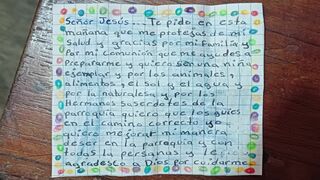 Señor Jesús... Te pido en esta
mañana que me protejas de mi
salud y gracias por mi familia y
por mi comunión que me ayudes a
prepararme y quiero ser una niña
ejemplar y por los animales,
alimentos, el sol y el agua y
por la naturalesa y por los
Hermanos saserdotes de la
parroquia quiero que los guies
en el camino correcto yo
quiero mejorar mi manera
de ser en la parroquia y con
todas la personas y le
agradesco a Dios por cuidarme.